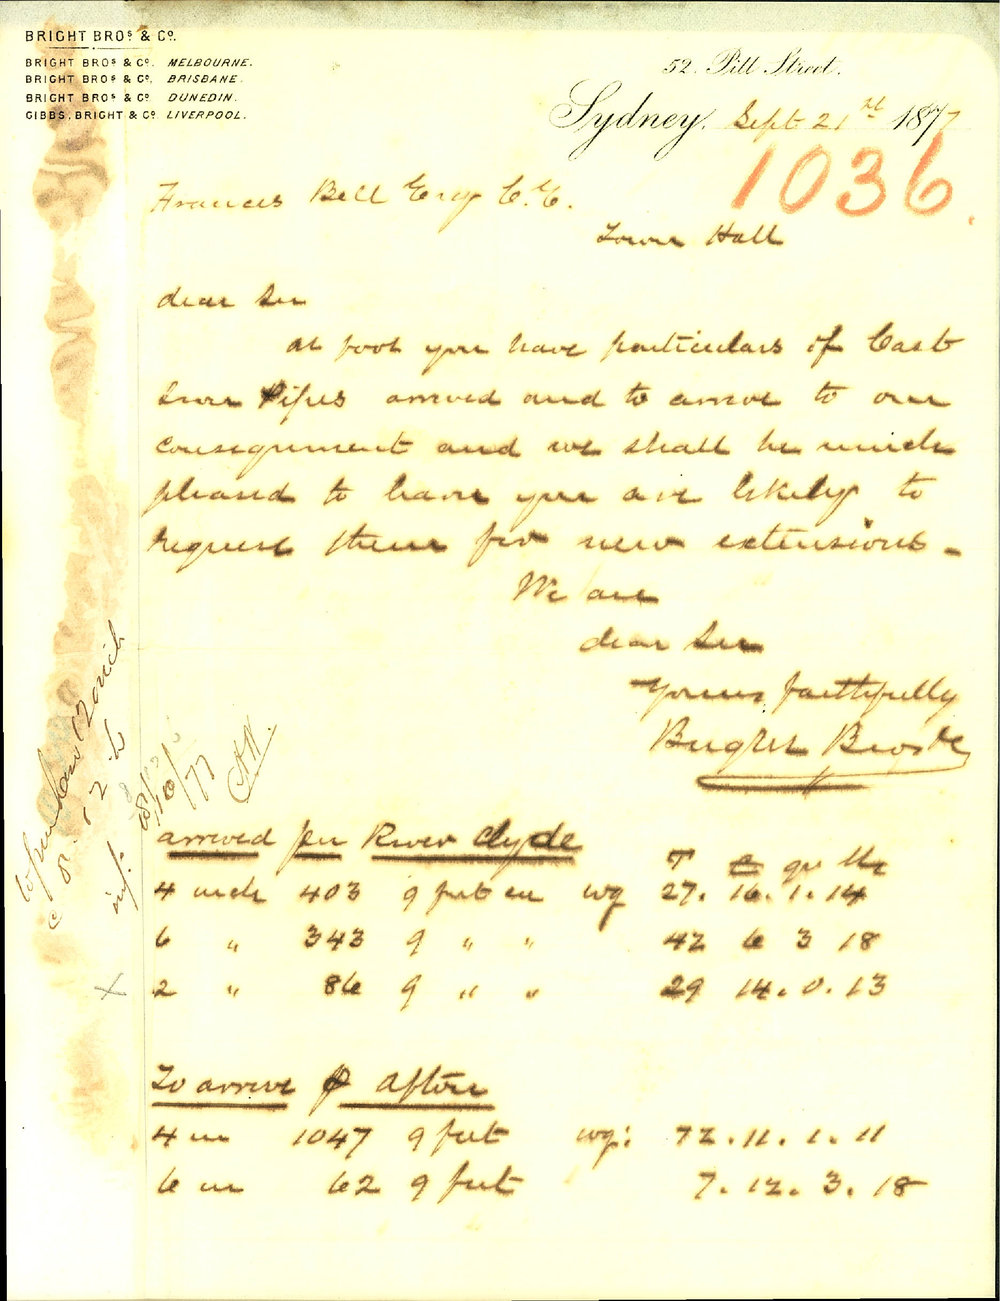 BRIGHT BROS & CO.
BRIGHT BROS & CO. MELBOURNE.
BRIGHT BROS & CO. BRISBANE.
BRIGHT BROS & CO. DUNEDIN.
GIBBS, BRIGHT & CO. LIVERPOOL.
52. Pitt Street.
Sydney. Sept 21st 1877
1036.
Frances Bell Esq C.E.
Town Hall
dear Sir
At foot you have particulars of Cast
Iron Pipes arrived and to arrive to our
consignment and we shall be much
pleased to learn you are likely to
request them for new extensions -
We are
dear Sir
Yours faithfully
Bright Bros & Co
18/10/77
arrived per River Clyde
T C qr lbs
4 inch 403 9 feet in wg 27. 16. 1. 14
6 " 343 9 " " 42 6 3 18
2 " 86 9 " " 29 14. 0. 13
To arrive p Afton
4 in 1047 9 feet wg: 72. 11. 1. 11
6 in 62 9 feet 7. 12. 3. 18
12 inch
or 12 in
X